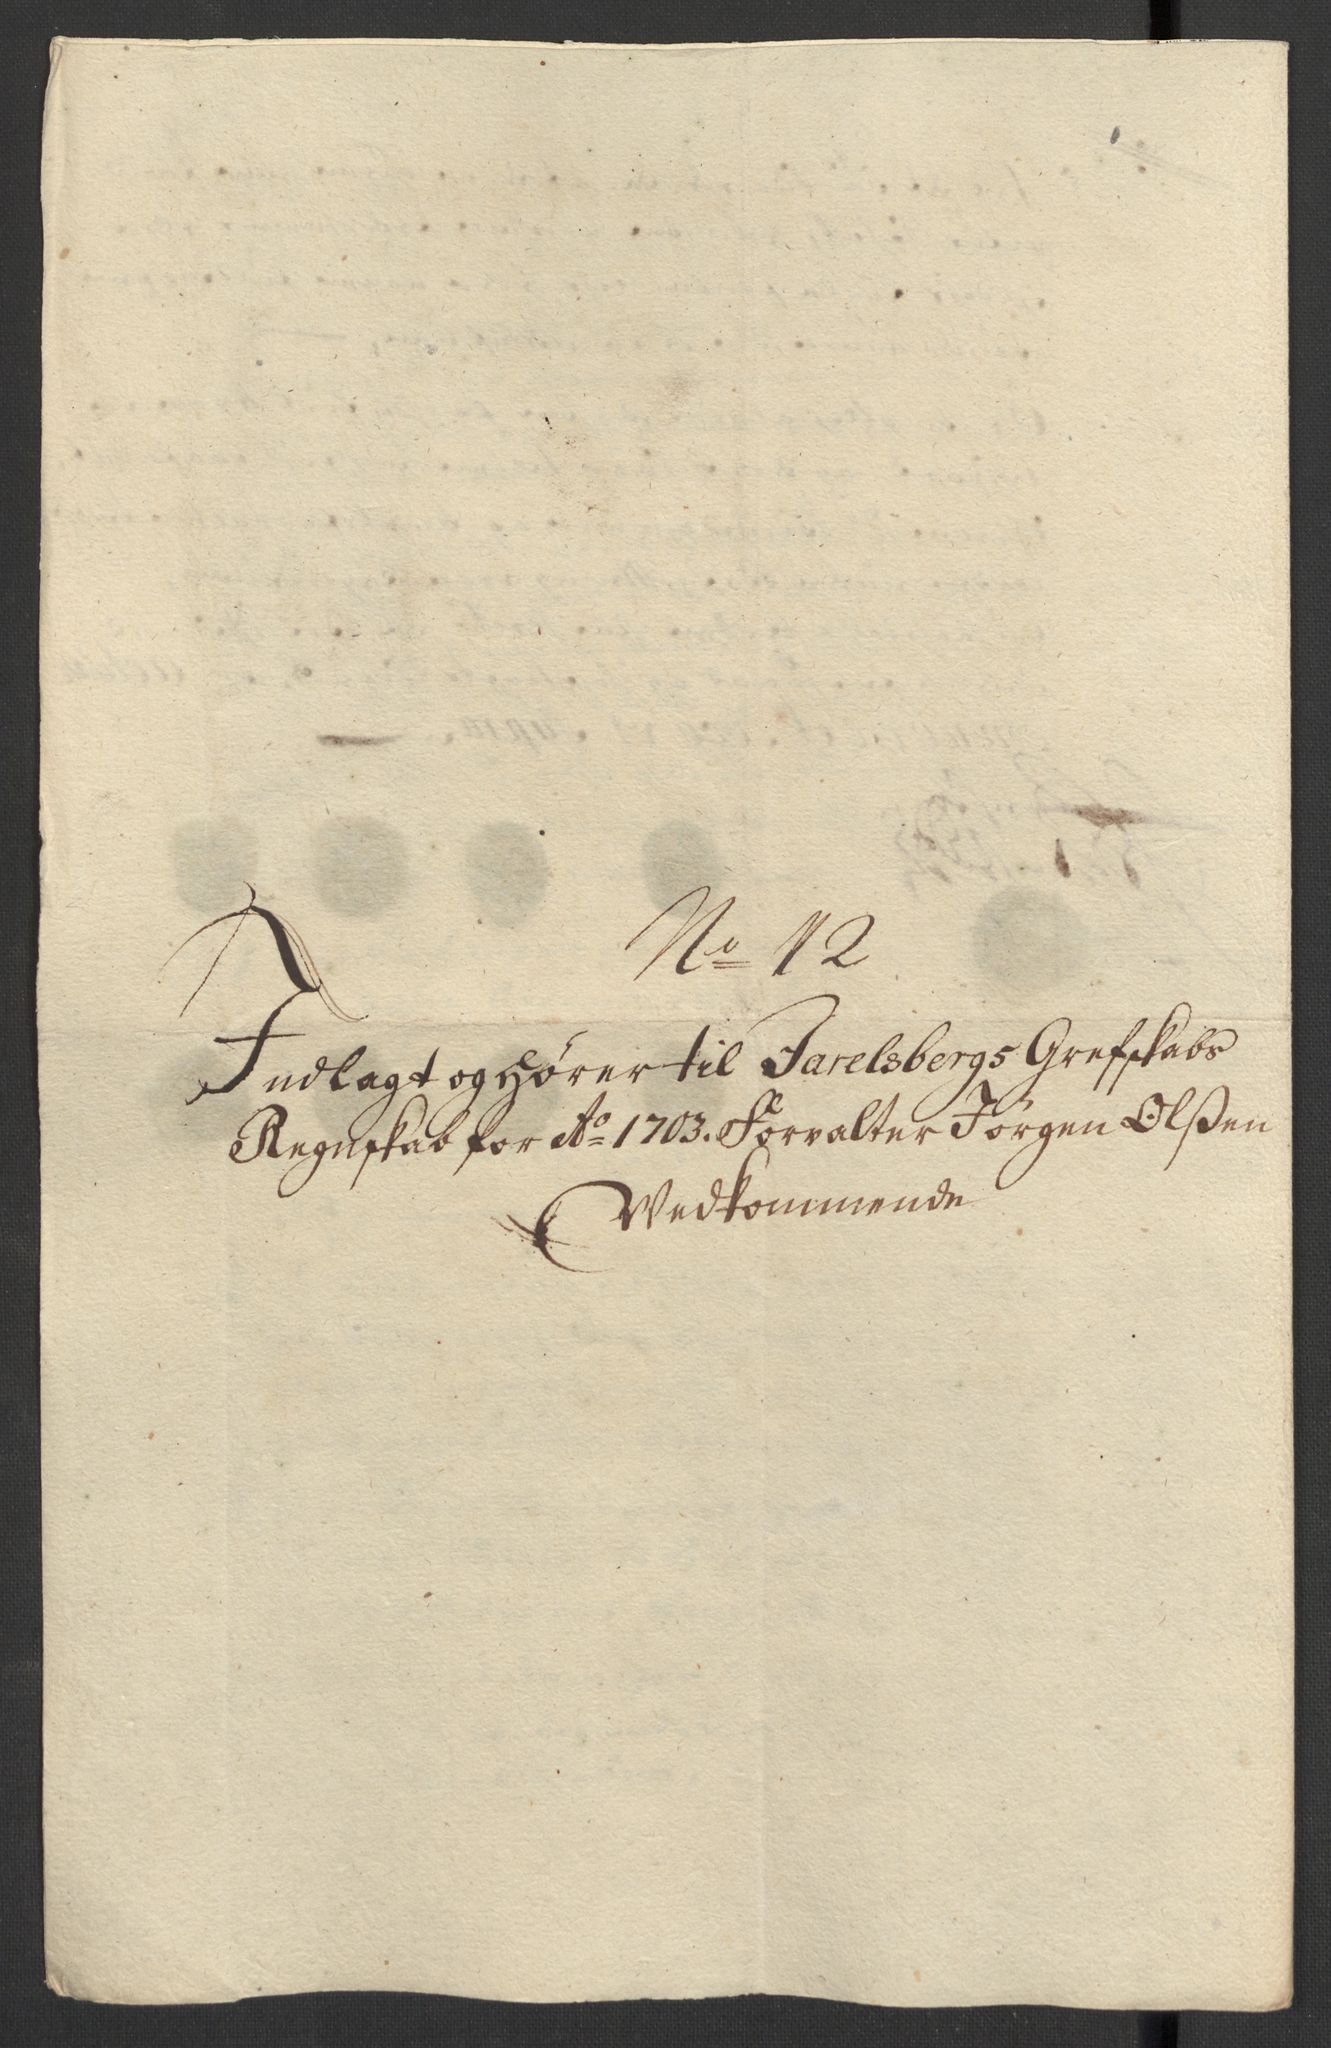 No 12
Indlagt og hører til Jarelsbergs Grefskabs
Regnskab for Ao 1703. Forvalter Jörgen Olßen
Vedkommende